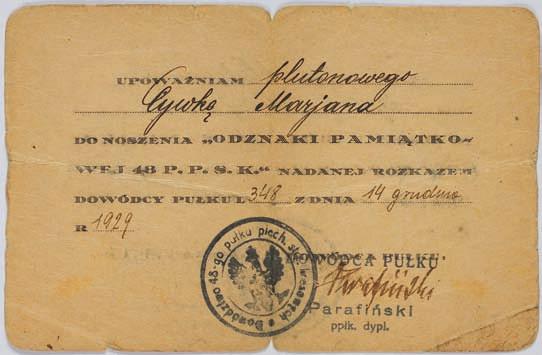 UPOWAŻNIAM plutonowego
Cywkę Marjana
DO NOSZENIA „ODZNAKI PAMIĄTKO-
WEJ 48 P. P. S. K.“ NADANEJ ROZKAZEM
DOWÓDCY PUŁKU L 348 Z DNIA 14 grudnia
R 1929
Dowództwo 48-go pułku piech. strz. kresowych
DOWÓDCA PUŁKU
Parafiński
Parafiński
ppłk. dypl.